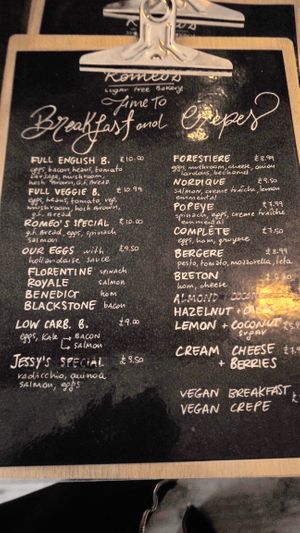 Romeo's
sugar free bakery
Time to
Breakfast and Crepes
FULL ENGLISH B. £10.00
eggs, bacon, beans, tomato
sausage, mushroom,
hash brown, g.f. bread
FULL VEGGIE B. £10.99
eggs, beans, tomato, veg.
mushroom, hash brown,
g.f. bread
ROMEO'S SPECIAL £10.00
g.f. bread, eggs, spinach
salmon
OUR EGGS with £9.50
hollandaise sauce
FLORENTINE spinach
ROYALE salmon
BENEDICT ham
BLACKSTONE bacon
LOW CARB. B. £9.00
eggs, kale → BACON
→ SALMON
JESSY'S SPECIAL £9.50
radicchio, quinoa
salmon, eggs
FORESTIERE £8.99
eggs, mushroom, cheese, onion
lardons, bechamel
NORDIQUE £8.50
salmon, creme fraîche, lemon
emmental
POPEYE £8.50
spinach, eggs, creme fraîche
emmental
COMPLÈTE £7.50
eggs, ham, gruyene
BERGERE £8.99
pesto, tomato, mozzarella, feta
BRETON
ham, cheese
ALMOND
HAZELNUT +
LEMON + COCONUT
SUGAR
CREAM CHEESE
+ BERRIES
VEGAN BREAKFAST
VEGAN CREPE